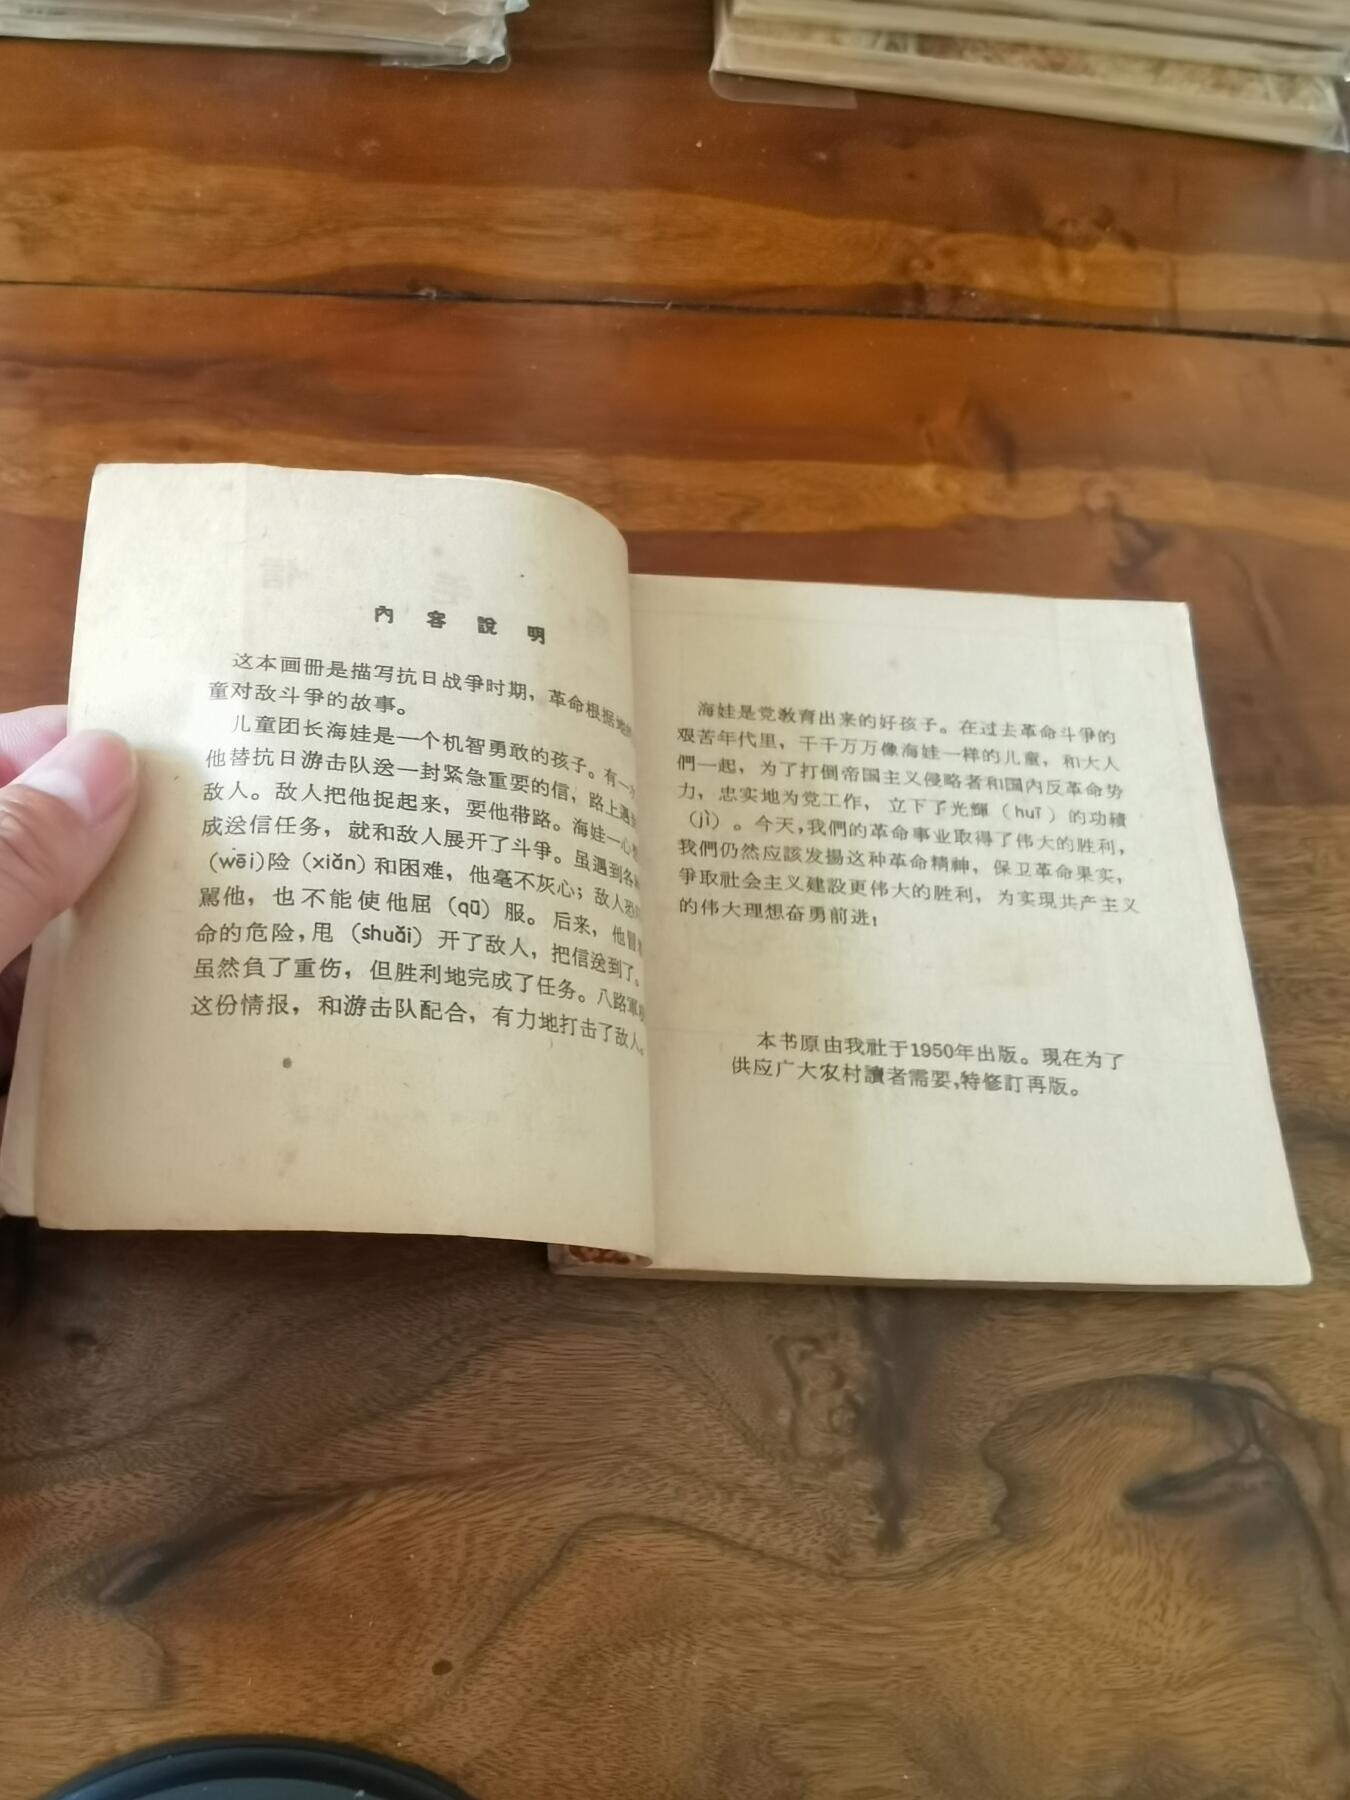 內容說明
这本画册是描写抗日战爭时期，革命根据地
童对敌斗爭的故事。
儿童团长海娃是一个机智勇敢的孩子。有一
他替抗日游击队送一封紧急重要的信，路上遇
敌人。敌人把他捉起来，要他带路。海娃一心
成送信任务，就和敌人展开了斗爭。虽遇到各
（wēi）险（xiǎn）和困难，他毫不灰心；敌人
駡他，也不能使他屈（qū）服。后来，他冒
命的危险，甩（shuǎi）开了敌人，把信送到了。
虽然負了重伤，但胜利地完成了任务。八路軍
这份情报，和游击队配合，有力地打击了敌人。
海娃是党教育出来的好孩子。在过去革命斗爭的
艰苦年代里，千千万万像海娃一样的儿童，和大人
們一起，为了打倒帝国主义侵略者和国内反革命势
力，忠实地为党工作，立下了光輝（huī）的功績
（jì）。今天，我們的革命事业取得了伟大的胜利，
我們仍然应該发揚这种革命精神，保卫革命果实，
爭取社会主义建設更伟大的胜利，为实現共产主义
的伟大理想奋勇前进！
本书原由我社于1950年出版。現在为了
供应广大农村讀者需要，特修訂再版。